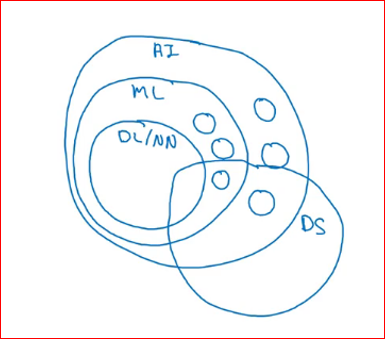 AI
ML
DL/NN
DS